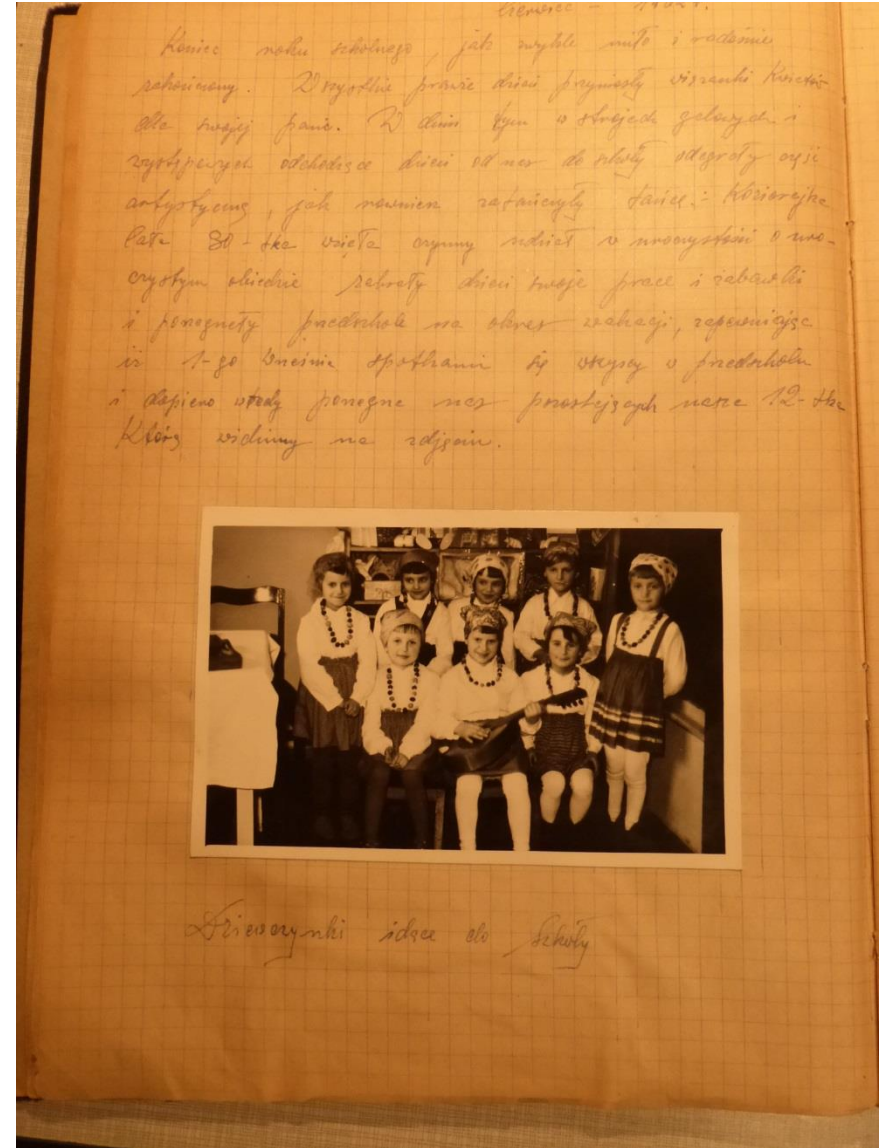 Czerwiec -
Koniec roku szkolnego, jak zwykle miło i radośnie
zakończony. Wszystkie prawie dzieci przyniosły wiązanki kwiatów
dla swojej pani. W dniu tym w strojach galowych i
występowych odchodzące dzieci od nas do szkoły odegrały część
artystyczną, jak również zatańczyły tańce:
Cała 30-tka wzięła czynny udział w uroczystości o uro-
czystym obiedzie zabrały dzieci swoje prace i zabawki
i pożegnały przedszkole na okres wakacji, zapewniając
iż 1-go września spotkami się wszyscy w przedszkolu
i dopiero wtedy pożegna nas pozostających nasze 12-tka
Którą widzimy na zdjęciu.
Dziewczynki idące do Szkoły